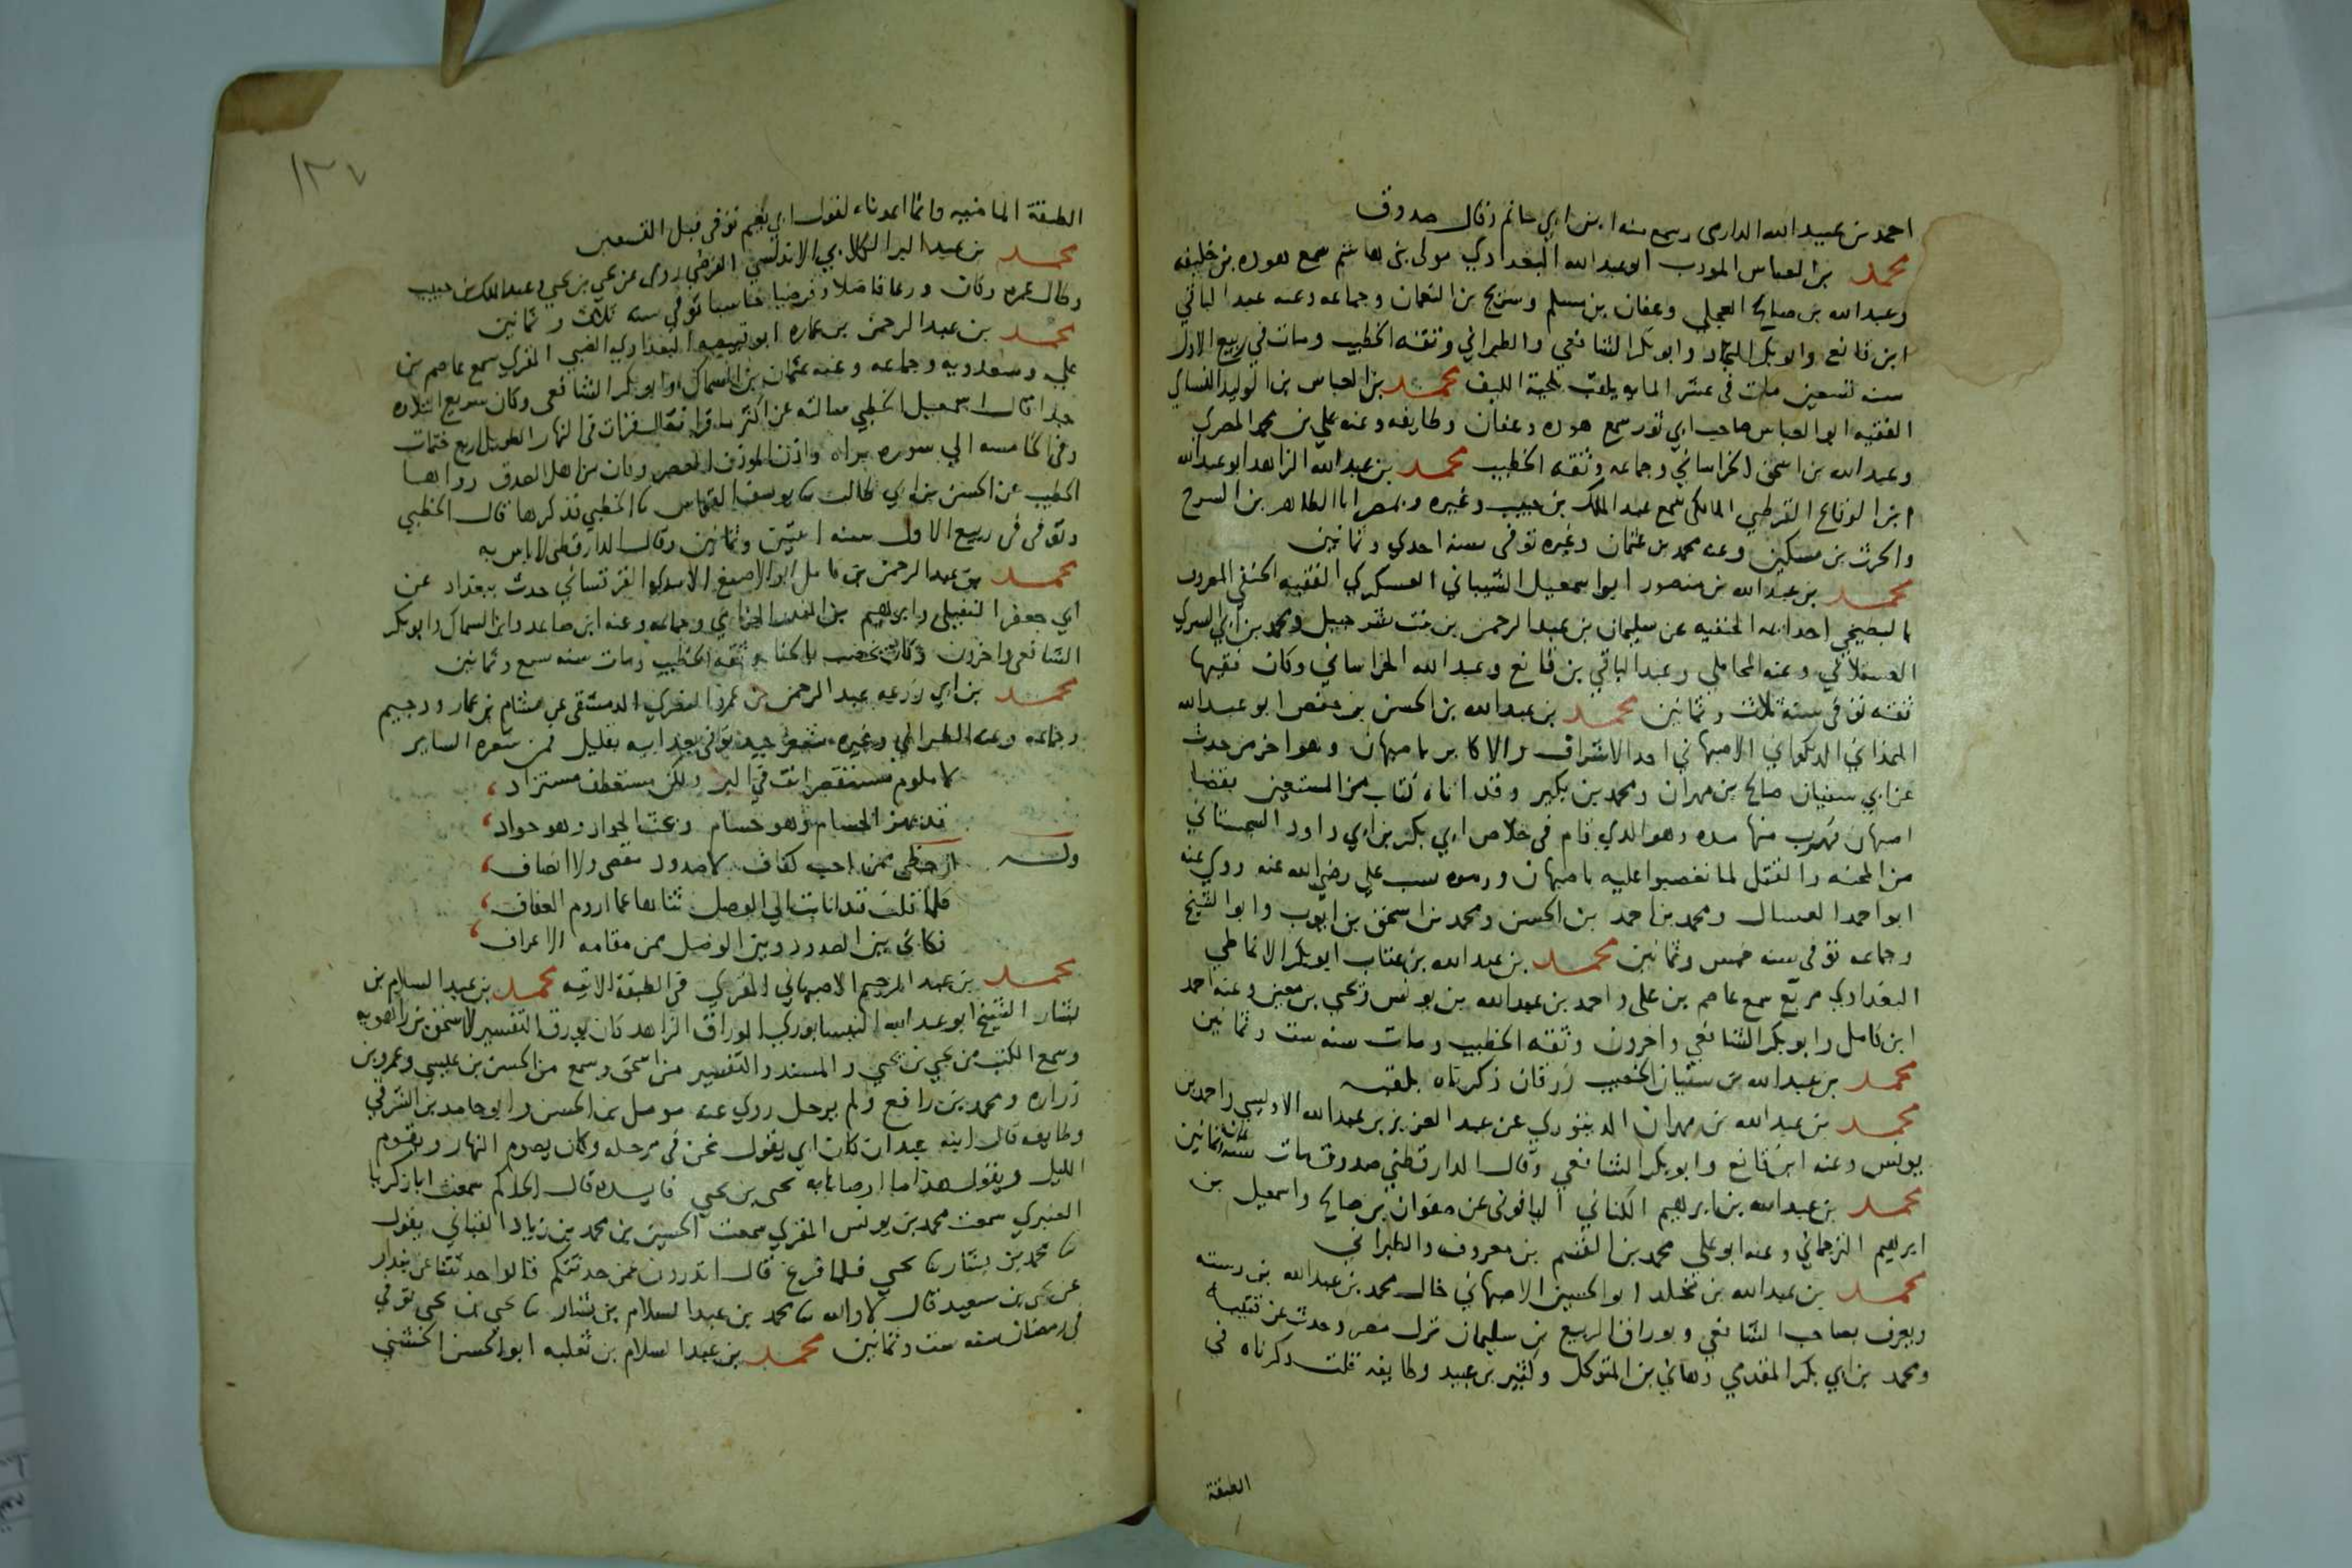 احمد بن عبيد الله الدارمى وسمع منه ابن ابي حاتم وقال صدوق
محمد بن العباس المودب ابو عبد الله البغدادي مولى بني هاشم سمع هوده بن خليفه
وعبد الله بن صالح العجلي وعفان بن مسلم وسريج بن النعمان وجماعه وعنه عبد الباقي
ابن قانع وابو بكر النجاد وابو بكر الشافعي والطبراني وثقه الخطيب ومات في ربيع الاول
سنه تسعين مات في عشر المايه يلقب لحية الليف محمد بن العباس بن الوليد الفساي
الفقيه ابو العباس صاحب ابي ثور سمع هوده وعفان وطايفه وعنه علي بن محمد المصري
وعبد الله بن اسحق الخراساني وجماعه وثقه الخطيب محمد بن عبد الله الزاهد ابو عبد الله
ابن الوفاع القرطبي المالكي سمع عبد الملك بن حبيب وغيره وبمصر ابا الطاهر بن السرح
والحرث بن مسكين وعنه محمد بن عثمان وغيره توفى سنه احدي وثمانين
محمد بن عبد الله بن منصور ابو اسمعيل الشيباني العسكري الفقيه الحنفي المعروف
بالبطيخي احد ايمه الحنفيه عن سليمان بن عبد الرحمن بن بنت شرحبيل ومحمد بن ابي السري
العسقلاني وعنه المحاملي وعبد الباقي بن قانع وعبد الله الخراساني وكان فقيها
ثقه توفى سنه ثلاث وثمانين محمد بن عبد الله بن الحسن بن حفص ابو عبد الله
الهمذاني الذكواني الاصبهاني احد الاشراف والاكابر باصبهان وهو اخر من حدث
عن ابي سفيان صالح بن مهران ومحمد بن بكير وقد اتاه كتاب من المستعين بقضا
اصبهان فهرب منها مده وهو الذي قام فى خلاص ابي بكر بن ابي داود السجستاني
من المحنه والقتل لما تعصبوا عليه باصبهان ورموه بسب علي رضي الله عنه روي عنه
ابو احمد العسال ومحمد بن احمد بن الحسن ومحمد بن اسحق بن ايوب وابو الشيخ
وجماعه توفى سنه خمس وثمانين محمد بن عبد الله بن عتاب ابو بكر الانماطي
البغدادي مربع سمع عاصم بن على واحمد بن عبد الله بن يونس ويحي بن معين وعنه احمد
ابن كامل وابو بكر الشافعي واخرون وثقه الخطيب ومات سنه ست وثمانين
محمد بن عبد الله بن سفيان الخضيب زرقان ذكرناه بلقبه
محمد بن عبد الله بن مهران الدينوري عن عبد العزيز بن عبد الله الاويسي واحمد بن
يونس وعنه ابن قانع وابو بكر الشافعي وقال الدارقطني صدوق مات سنه ثمان وثمانين
محمد بن عبد الله بن ابرهيم الكناني اليافونى عن صفوان بن صالح واسمعيل بن
ابرهيم الترجماني وعنه ابو علي محمد بن القسم بن معروف والطبراني
محمد بن عبد الله بن مخلد ابو الحسين الاصبهاني خال محمد بن عبد الله بن رسته
ويعرف بصاحب الشافعي وبوراق الربيع بن سليمان نزل مصر وحدث عن قتيبه
ومحمد بن ابي بكر المقدمي وهاني بن المتوكل وكثير بن عبيد وطايفه قلت ذكرناه في
الطبقة
١٣٧
الطبقة الماضيه وانما اعدناه لقول ابي نعيم توفى قبل التسعين
محمد بن عبد البر الكلابي الاندلسي القرطبي روى عن يحي بن يحي وعبد الملك بن حبيب
وطال عمره وكان ورعا فاضلا وفرضيا حاسبا توفى سنه ثلاث وثمانين
محمد بن عبد الرحمن بن عماره ابو قبيصه البغدادي الضبي المقري سمع عاصم بن
علي وسعدويه وجماعه وعنه عثمان بن السماك وابو بكر الشافعى وكان سريع التلاوه
جدا قال اسمعيل الخطبي سالته عن اكثر ما قرا فقال قرات في النهار الطويل اربع ختمات
وفى الخامسه الي سوره براه واذن الموذن العصر وكان من اهل الصدق رواها
الخطيب عن الحسن بن ابي طالب ثنا يوسف القواس ثنا الخطبي فذكرها قال الخطبي
وتوفى فى ربيع الاول سنه اثنتين وثمانين وقال الدارقطنى لاباس به
محمد بن عبد الرحمن بن كامل ابو الاصبغ الاسدي القرقساني حدث ببغداد عن
ابي جعفر النفيلي وابرهيم بن المنذر الحزامي وجماعه وعنه ابن صاعد وابن السماك وابو بكر
الشافعى واخرون وكان يخضب بالحنا وثقه الخطيب ومات سنه سبع وثمانين
محمد بن ابي زرعه عبد الرحمن بن عمرو النصري الدمشقي عن هشام بن عمار ودحيم
وجماعه وعنه الطبراني وغيره شعره جيد توفى بعد ابيه بقليل فمن شعره الساير
لا ملوم مستقصر انت في البر ولكن مستعطف مستزاد
قد يهز الحسام وهو حسام ويحث الجواد وهو جواد
وله ان حظي ممن احب كفاف لا صدود مقصى ولا انصاف
فلما قلت قد انابت الي الوصل ثناها عما اروم العفاف
فكاني بين الصدود وبين الوصل ممن مقامه الاعراف
محمد بن عبد الرحيم الاصبهاني المقري في الطبقة الاتيه محمد بن عبد السلام بن
بشار الشيخ ابو عبد الله النيسابوري الوراق الزاهد كان يورق التفسير لاسحق بن راهويه
وسمع الكتب من يحي بن يحي والمسند والتفسير من اسحق وسمع من الحسن بن عيسي وعمرو بن
زراره ومحمد بن رافع ولم يرحل روي عنه مومل بن الحسن وابو حامد بن الشرقي
وطايفه قال ابنه عبدان كان ابي يقول نحن في مرحله وكان يصوم النهار ويقوم
الليل ويقول هذا ما اوصانا به يحي بن يحي فايده قال الحاكم سمعت ابا زكريا
العنبري سمعت محمد بن يونس المقري سمعت الحسين بن محمد بن زياد القباني يقول
ثنا محمد بن بشار ثنا يحي فلما فرغ قال اتدرون عمن حدثتكم قالوا حدثتنا عن بندار
عن يحي بن سعيد قال لا والله ثنا محمد بن عبد السلام بن بشار ثنا يحي بن يحي توفي
في رمضان سنه ست وثمانين محمد بن عبد السلام بن ثعلبه ابو الحسن الخشني